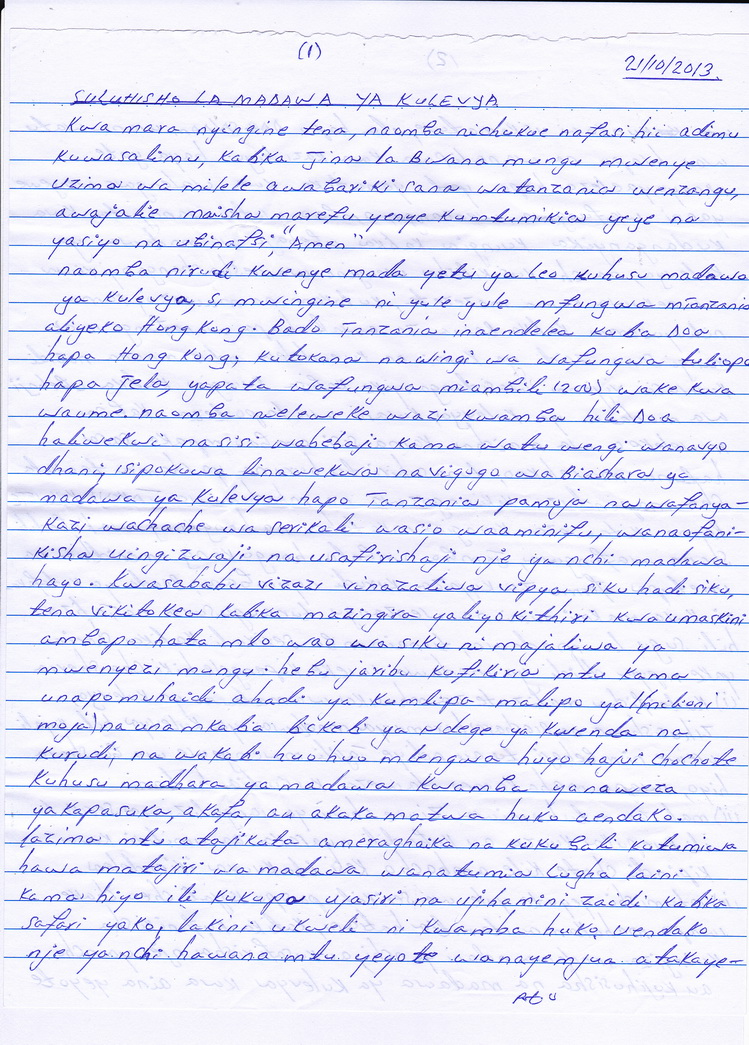 (1)
21/10/2013.
SULUHISHO LA MADAWA YA KULEVYA
Kwa mara nyingine tena, naomba nichukue nafasi hii adimu
kuwasalimu, katika Jina la Bwana mungu mwenye
uzima wa milele awabariki sana watanzania wenzangu,
awajalie maisha marefu yenye kumtumikia yeye na
yasiyo na ubinafsi, "Amen"
naomba nirudi kwenye mada yetu ya leo kuhusu madawa
ya kulevya, si mwingine ni yule yule mfungwa mTanzania
aliyeko Hong Kong. Bado Tanzania inaendelea kutia Doa
hapa Hong Kong; kutokana na wingi wa wafungwa tuliopo
hapa Jela, yapata wafungwa miambili (200) wake kwa
waume. naomba nieleweke wazi kwamba hili Doa
haliwekwi na sisi wabebaji kama watu wengi wanavyo
dhani, isipokuwa linawekwa na vigogo wa Biashara ya
madawa ya kulevya hapo Tanzania pamoja na wafanya-
kazi wachache wa serikali wasio waaminifu, wanaofani-
kisha uingizwaji na usafirishaji nje ya nchi madawa
hayo. Kwasababu vizazi vinazaliwa vipya siku hadi siku,
tena vikitokea katika mazingira yaliyokithiri kwa umaskini
ambapo hata mlo wao wa siku ni majaliwa ya
mwenyezi mungu. hebu jaribu kufikiria mtu kama
unapomuhaidi ahadi ya kumlipa malipo ya 1(milioni
moja) na unamkatia ticketi ya Ndege ya kwenda na
kurudi, na wakati huo huo mlengwa huyo hajui chochote
kuhusu madhara ya madawa kwamba yanaweza
yakapasuka, akafa, au akakamatwa huko aendako.
lazima mtu atajikuta ameraghaika na kukubali kutumiwa
hawa matajiri wa madawa wanatumia lugha laini
kama hiyo ili kukupa ujasiri na ujihamini zaidi katika
safari yako, lakini ukweli ni kwamba huko uendako
nje ya nchi hawana mtu yeyote wanayemjua atakaye-